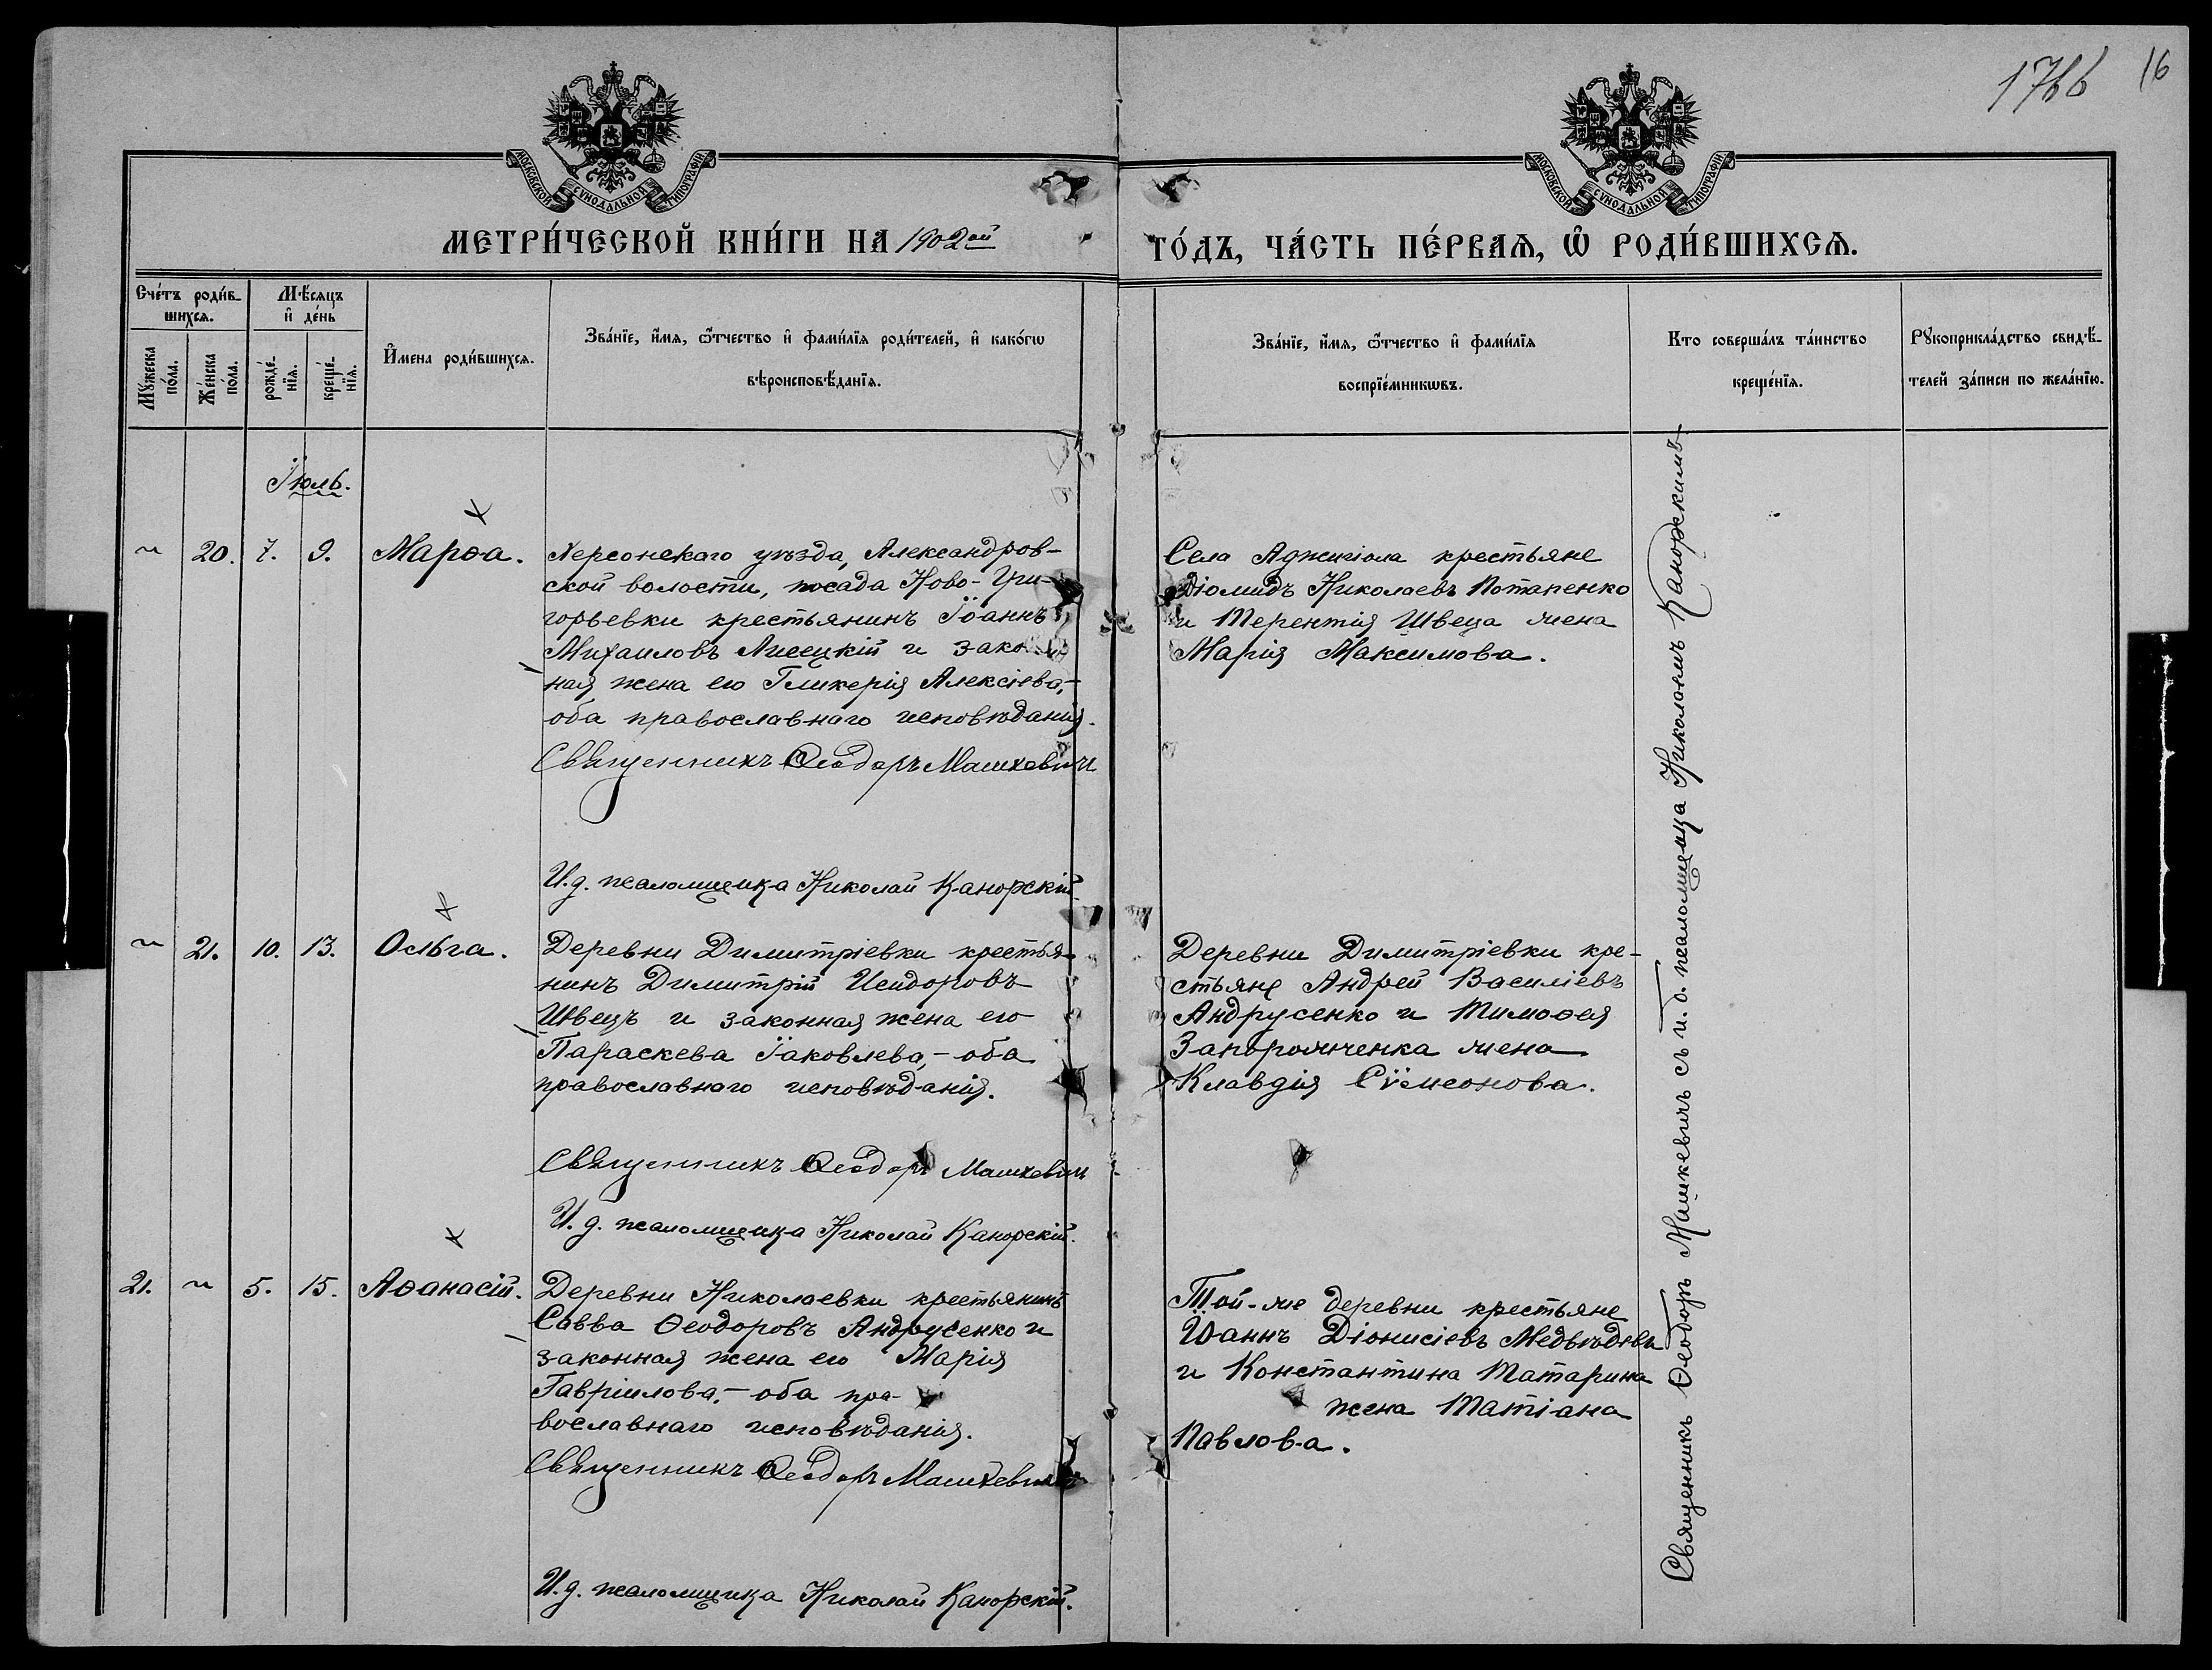 1766 16
МОСКОВСКОЙ СѴНОДАЛЬНОЙ ТИПОГРАФІИ
МОСКОВСКОЙ СѴНОДАЛЬНОЙ ТИПОГРАФІИ
МЕТРИ́ЧЕСКОЙ КНИ́ГИ НА 1902ой ГО́ДЪ, ЧА́СТЬ ПЕ́РВАѦ, Ѡ҆ РОДИ́ВШИХСѦ.
Сче́тъ роди́в-
шихсѧ.
Мѣ́сѧцъ
и҆ де́нь
Мꙋ́жеска
по́ла.
Же́нска
по́ла.
рожде́-
нїѧ.
креще́-
нїѧ.
И҆мена роди́вшихсѧ.
Зва́нїе, и҆́мѧ, ѻ҆́тчество и҆ фами́лїѧ роди́телей, и҆ како́гѡ
вѣроисповѣ́данїѧ.
Зва́нїе, и҆́мѧ, ѻ҆́тчество и҆ фами́лїѧ
воспрїе́мникѡвъ.
Кто соверша́лъ та́инство
креще́нїѧ.
Рꙋкоприкла́дство свидѣ́-
телей за́писи по жела́нїю.
Іюль.
„ 20. 7. 9. Марѳа.
Херсонскаго уѣзда, Александров-
ской волости, посада Ново-Гри-
горьевки крестьянинъ Іоаннъ
Михаиловъ Лисецкій и закон
ная жена его Гликерія Алексіева,-
оба православнаго исповѣданія.
Священникъ Ѳеодоръ Машкевич
И.д. псаломщика Николай Канорскій.
Села Аджигіола крестьяне
Діомидъ Николаевъ Потапенко
и Терентія Швеца жена
Марія Максимова.
„ 21. 10. 13. Ольга.
Деревни Димитріевки крестья-
нинъ Димитрій Исидоровъ
Швецъ и законная жена его
Параскева Іаковлева,- оба
православнаго исповѣданія.
Священникъ Ѳеодоръ Машкевич
И.д. псаломщика Николай Канорскій.
Деревни Димитріевки кре-
стьяне Андрей Василіевъ
Андрусенко и Тимоѳея
Запорожченка жена
Клавдія Сѵмеонова.
21. „ 5. 15. Аѳанасій.
Деревни Николаевки крестьянинъ
Савва Ѳеодоровъ Андрусенко и
законная жена его Марія
Гавріилова.- оба пра-
вославнаго исповѣданія.
Священникъ Ѳеодоръ Машкевич
И.д. псаломщика Николай Канорскій.
Той-же деревни крестьяне
Іоаннъ Діонисіевъ Медвѣдевъ
и Константина Татарина
жена Татіана
Павлова.
Священникъ Ѳеодоръ Машкевичъ съ и.д. псаломщика Николаемъ Канорскимъ